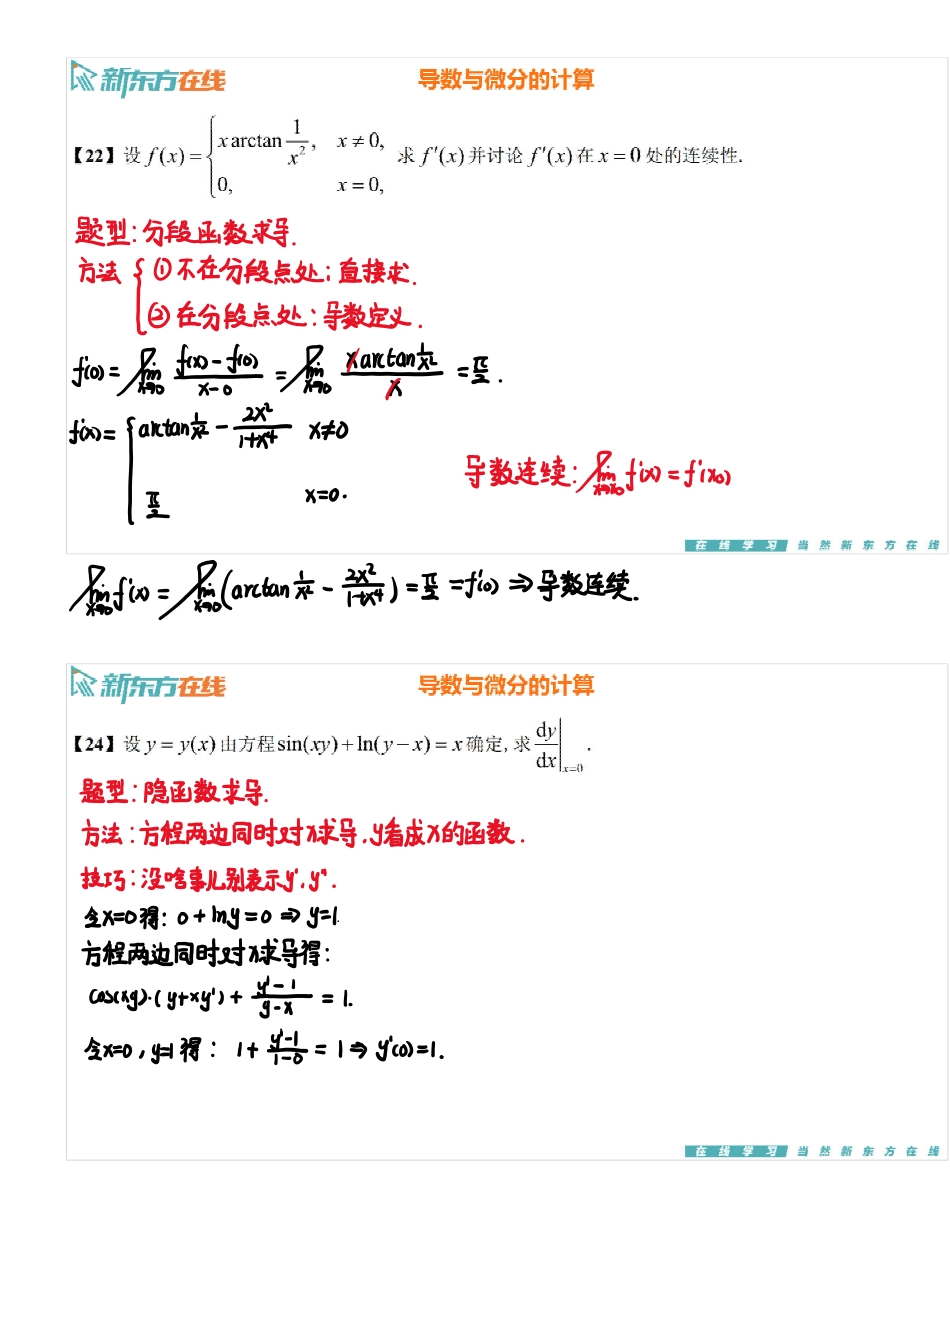 新东方在线
导数与微分的计算
【22】设 f(x) = { x arctan 1/x², x ≠ 0, 0, x = 0, 求 f′(x) 并讨论 f′(x) 在 x = 0 处的连续性.
题型: 分段函数求导.
方法 { ①不在分段点处: 直接求.
②在分段点处: 导数定义.
f'(0) = lim x→0 (f(x) - f(0))/(x - 0) = lim x→0 (x arctan 1/x²)/x = π/2.
f'(x) = { arctan 1/x² - 2x²/(1+x⁴) x≠0
π/2 x=0.
导数连续: lim x→x₀ f'(x) = f'(x₀)
在线学习 当然新东方在线
lim x→0 f'(x) = lim x→0 (arctan 1/x² - 2x²/(1+x⁴)) = π/2 = f'(0) ⇒ 导数连续.
新东方在线
导数与微分的计算
【24】设 y = y(x) 由方程 sin(xy) + ln(y − x) = x 确定, 求 dy/dx |x=0 .
题型: 隐函数求导.
方法: 方程两边同时对x求导, y看成x的函数.
技巧: 没啥事儿别表示y', y''.
令x=0得: 0 + lny = 0 ⇒ y=1.
方程两边同时对x求导得:
cos(xy)·(y+xy') + (y'-1)/(y-x) = 1.
令x=0, y=1得: 1 + (y'-1)/(1-0) = 1 ⇒ y'(0)=1.
在线学习 当然新东方在线